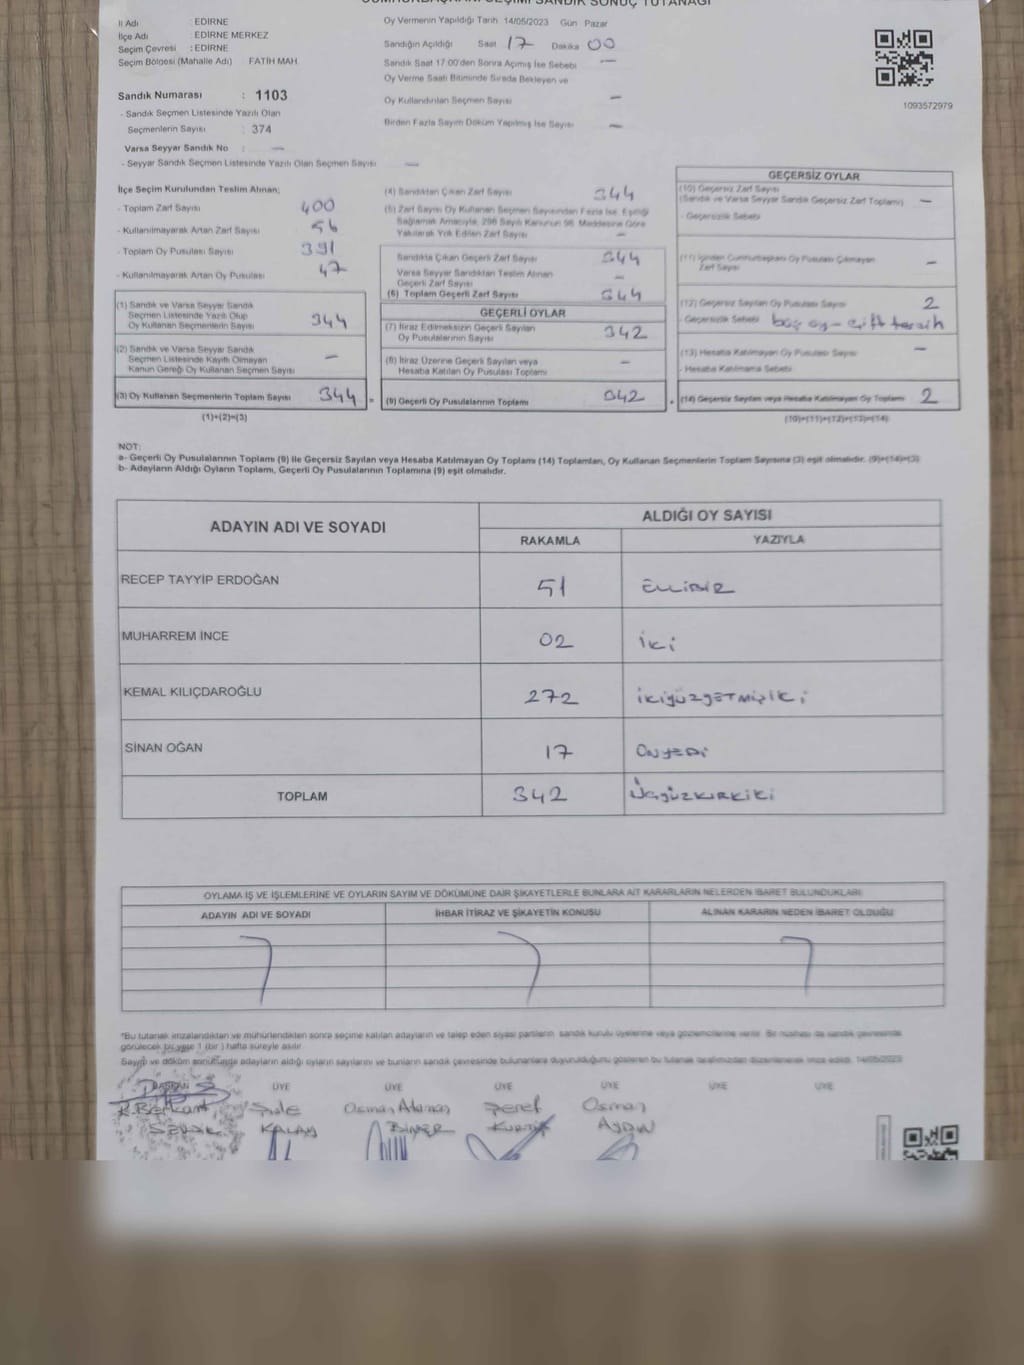 İli Adı : EDİRNE
İlçe Adı : EDİRNE MERKEZ
Seçim Çevresi : EDİRNE
Seçim Bölgesi (Mahalle Adı) FATİH MAH.
Sandık Numarası : 1103
- Sandık Seçmen Listesinde Yazılı Olan
Seçmenlerin Sayısı : 374
Varsa Seyyar Sandık No : —
- Seyyar Sandık Seçmen Listesinde Yazılı Olan Seçmen Sayısı —
Oy Vermenin Yapıldığı Tarih 14/05/2023 Gün Pazar
Sandığın Açıldığı Saat 17 Dakika 00
Sandık Saat 17:00'den Sonra Açımış İse Sebebi —
Oy Verme Saati Bitiminde Sırada Bekleyen ve
Oy Kullandırılan Seçmen Sayısı —
Birden Fazla Sayım Döküm Yapılmış İse Sayısı —
1093572979
İlçe Seçim Kurulundan Teslim Alınan;
- Toplam Zarf Sayısı 400
- Kullanılmayarak Artan Zarf Sayısı 56
- Toplam Oy Pusulası Sayısı 391
- Kullanılmayarak Artan Oy Pusulası 47
(1) Sandık ve Varsa Seyyar Sandık
Seçmen Listesinde Yazılı Olup
Oy Kullanan Seçmenlerin Sayısı 344
(2) Sandık ve Varsa Seyyar Sandık
Seçmen Listesinde Kayıtlı Olmayan
Kanun Gereği Oy Kullanan Seçmen Sayısı —
(3) Oy Kullanan Seçmenlerin Toplam Sayısı 344 =
(1)+(2)=(3)
(4) Sandıktan Çıkan Zarf Sayısı 344
(5) Zarf Sayısı Oy Kullanan Seçmen Sayısından Fazla İse, Eşitliği
Sağlamak Amacıyla, 298 Sayılı Kanunun 98. Maddesine Göre
Yakılarak Yok Edilen Zarf Sayısı —
Sandıkta Çıkan Geçerli Zarf Sayısı 344
Varsa Seyyar Sandıktan Teslim Alınan
Geçerli Zarf Sayısı —
(6) Toplam Geçerli Zarf Sayısı 344
GEÇERLİ OYLAR
(7) İtiraz Edilmeksizin Geçerli Sayılan
Oy Pusulalarının Sayısı 342
(8) İtiraz Üzerine Geçerli Sayılan veya
Hesaba Katılan Oy Pusulası Toplamı —
(9) Geçerli Oy Pusulalarının Toplamı 342 +
GEÇERSİZ OYLAR
(10) Geçersiz Zarf Sayısı
(Sandık ve Varsa Seyyar Sandık Geçersiz Zarf Toplamı) —
- Geçersizlik Sebebi
(11) İçinden Cumhurbaşkanı Oy Pusulası Çıkmayan
Zarf Sayısı —
(12) Geçersiz Sayılan Oy Pusulası Sayısı 2
- Geçersizlik Sebebi boş oy - çift tercih
(13) Hesaba Katılmayan Oy Pusulası Sayısı —
- Hesaba Katılmama Sebebi
(14) Geçersiz Sayılan veya Hesaba Katılmayan Oy Toplamı 2
(10)+(11)+(12)+(13)=(14)
NOT:
a- Geçerli Oy Pusulalarının Toplamı (9) ile Geçersiz Sayılan veya Hesaba Katılmayan Oy Toplamı (14) Toplamları, Oy Kullanan Seçmenlerin Toplam Sayısına (3) eşit olmalıdır. (9)+(14)=(3)
b- Adayların Aldığı Oyların Toplamı, Geçerli Oy Pusulalarının Toplamına (9) eşit olmalıdır.
ADAYIN ADI VE SOYADI
ALDIĞI OY SAYISI
RAKAMLA YAZIYLA
RECEP TAYYİP ERDOĞAN 51 ELLİBİR
MUHARREM İNCE 02 İKİ
KEMAL KILIÇDAROĞLU 272 İKİYÜZYETMİŞİKİ
SİNAN OĞAN 17 ONYEDİ
TOPLAM 342 ÜÇYÜZKIRKİKİ
OYLAMA İŞ VE İŞLEMLERİNE VE OYLARIN SAYIM VE DÖKÜMÜNE DAİR ŞİKAYETLERLE BUNLARA AİT KARARLARIN NELERDEN İBARET BULUNDUKLARI
ADAYIN ADI VE SOYADI İHBAR İTİRAZ VE ŞİKAYETİN KONUSU ALINAN KARARIN NEDEN İBARET OLDUĞU
*Bu tutanak imzalandıktan ve mühürlendikten sonra seçime katılan adayların ve talep eden siyasi partilerin, sandık kurulu üyelerine veya gözlemcilerine verilir. Bir nüshası da sandık çevresinde
görülecek bir yere 1 (bir ) hafta süreyle asılır.
Sayım ve döküm sonunda adayların aldığı oyların sayılarını ve bunların sandık çevresinde bulunanlara duyurulduğunu gösteren bu tutanak tarafımızdan düzenlenerek imza edildi. 14/05/2023
BAŞKAN ÜYE ÜYE ÜYE ÜYE ÜYE ÜYE
R. Berkant Şule Osman Şeref Osman
KALAY KURTİŞ AYDIN